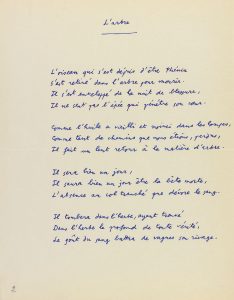 L'arbre
L'oiseau qui s'est dépris d'être Phénix
S'est retiré dans l'arbre pour mourir.
Il s'est enveloppé de la nuit de blessure,
Il ne sent pas l'épée qui pénètre son cœur.
Comme l'huile a vieilli et noirci dans les lampes,
Comme tant de chemins que nous étions, perdus,
Il fait un lent retour à la matière d'arbre.
Il sera bien un jour,
Il saura bien un jour être la bête morte,
L'absence au col tranché que dévore le sang.
Il tombera dans l'herbe, ayant trouvé
Dans l'herbe le profond de toute vérité,
Le goût du sang battra de vagues son rivage.